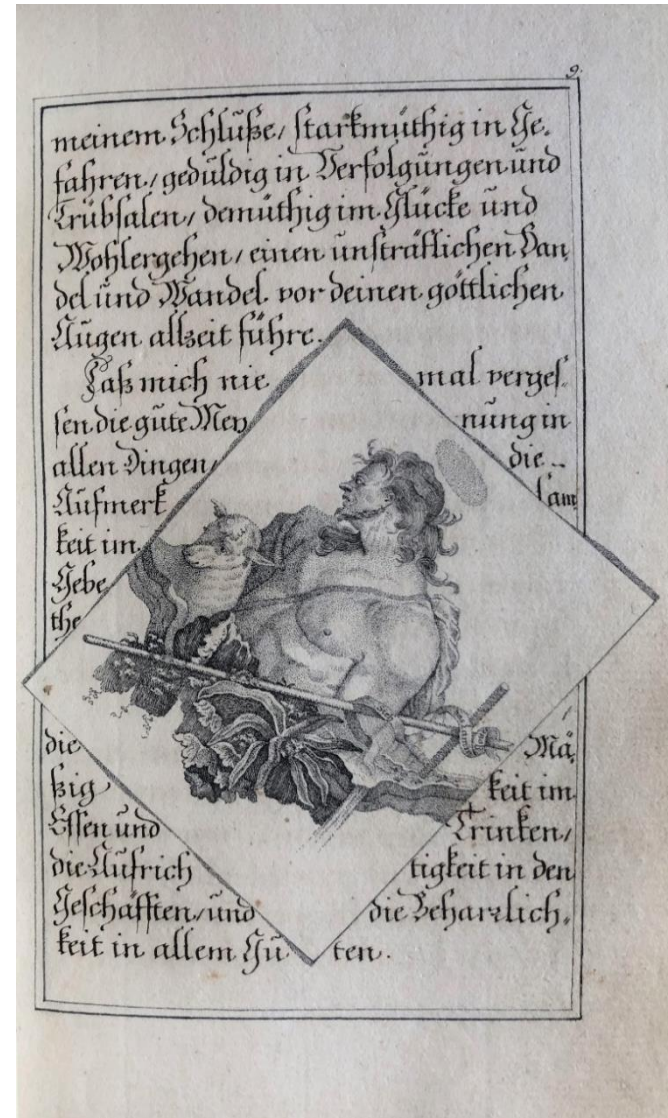 9.
meinem Schlüße, starkmüthig in Ge-
fahren, gedüldig in Verfolgüngen und
Trübsalen, demüthig im Glücke und
Wohlergehen, einen unsträflichen Han-
del und Wandel vor deinen göttlichen
Aügen allzeit führe.
Laß mich nie mal vergeſ-
ſen die güte Mey nüng in
allen Dingen, die
Aüfmerk ſam
keit im
Gebe
the
die Mä-
ßig keit im
Eſſen und Trinken,
die Aüfrich tigkeit in den
Geſchäfften, und die Beharrlich-
keit in allem Gü ten.